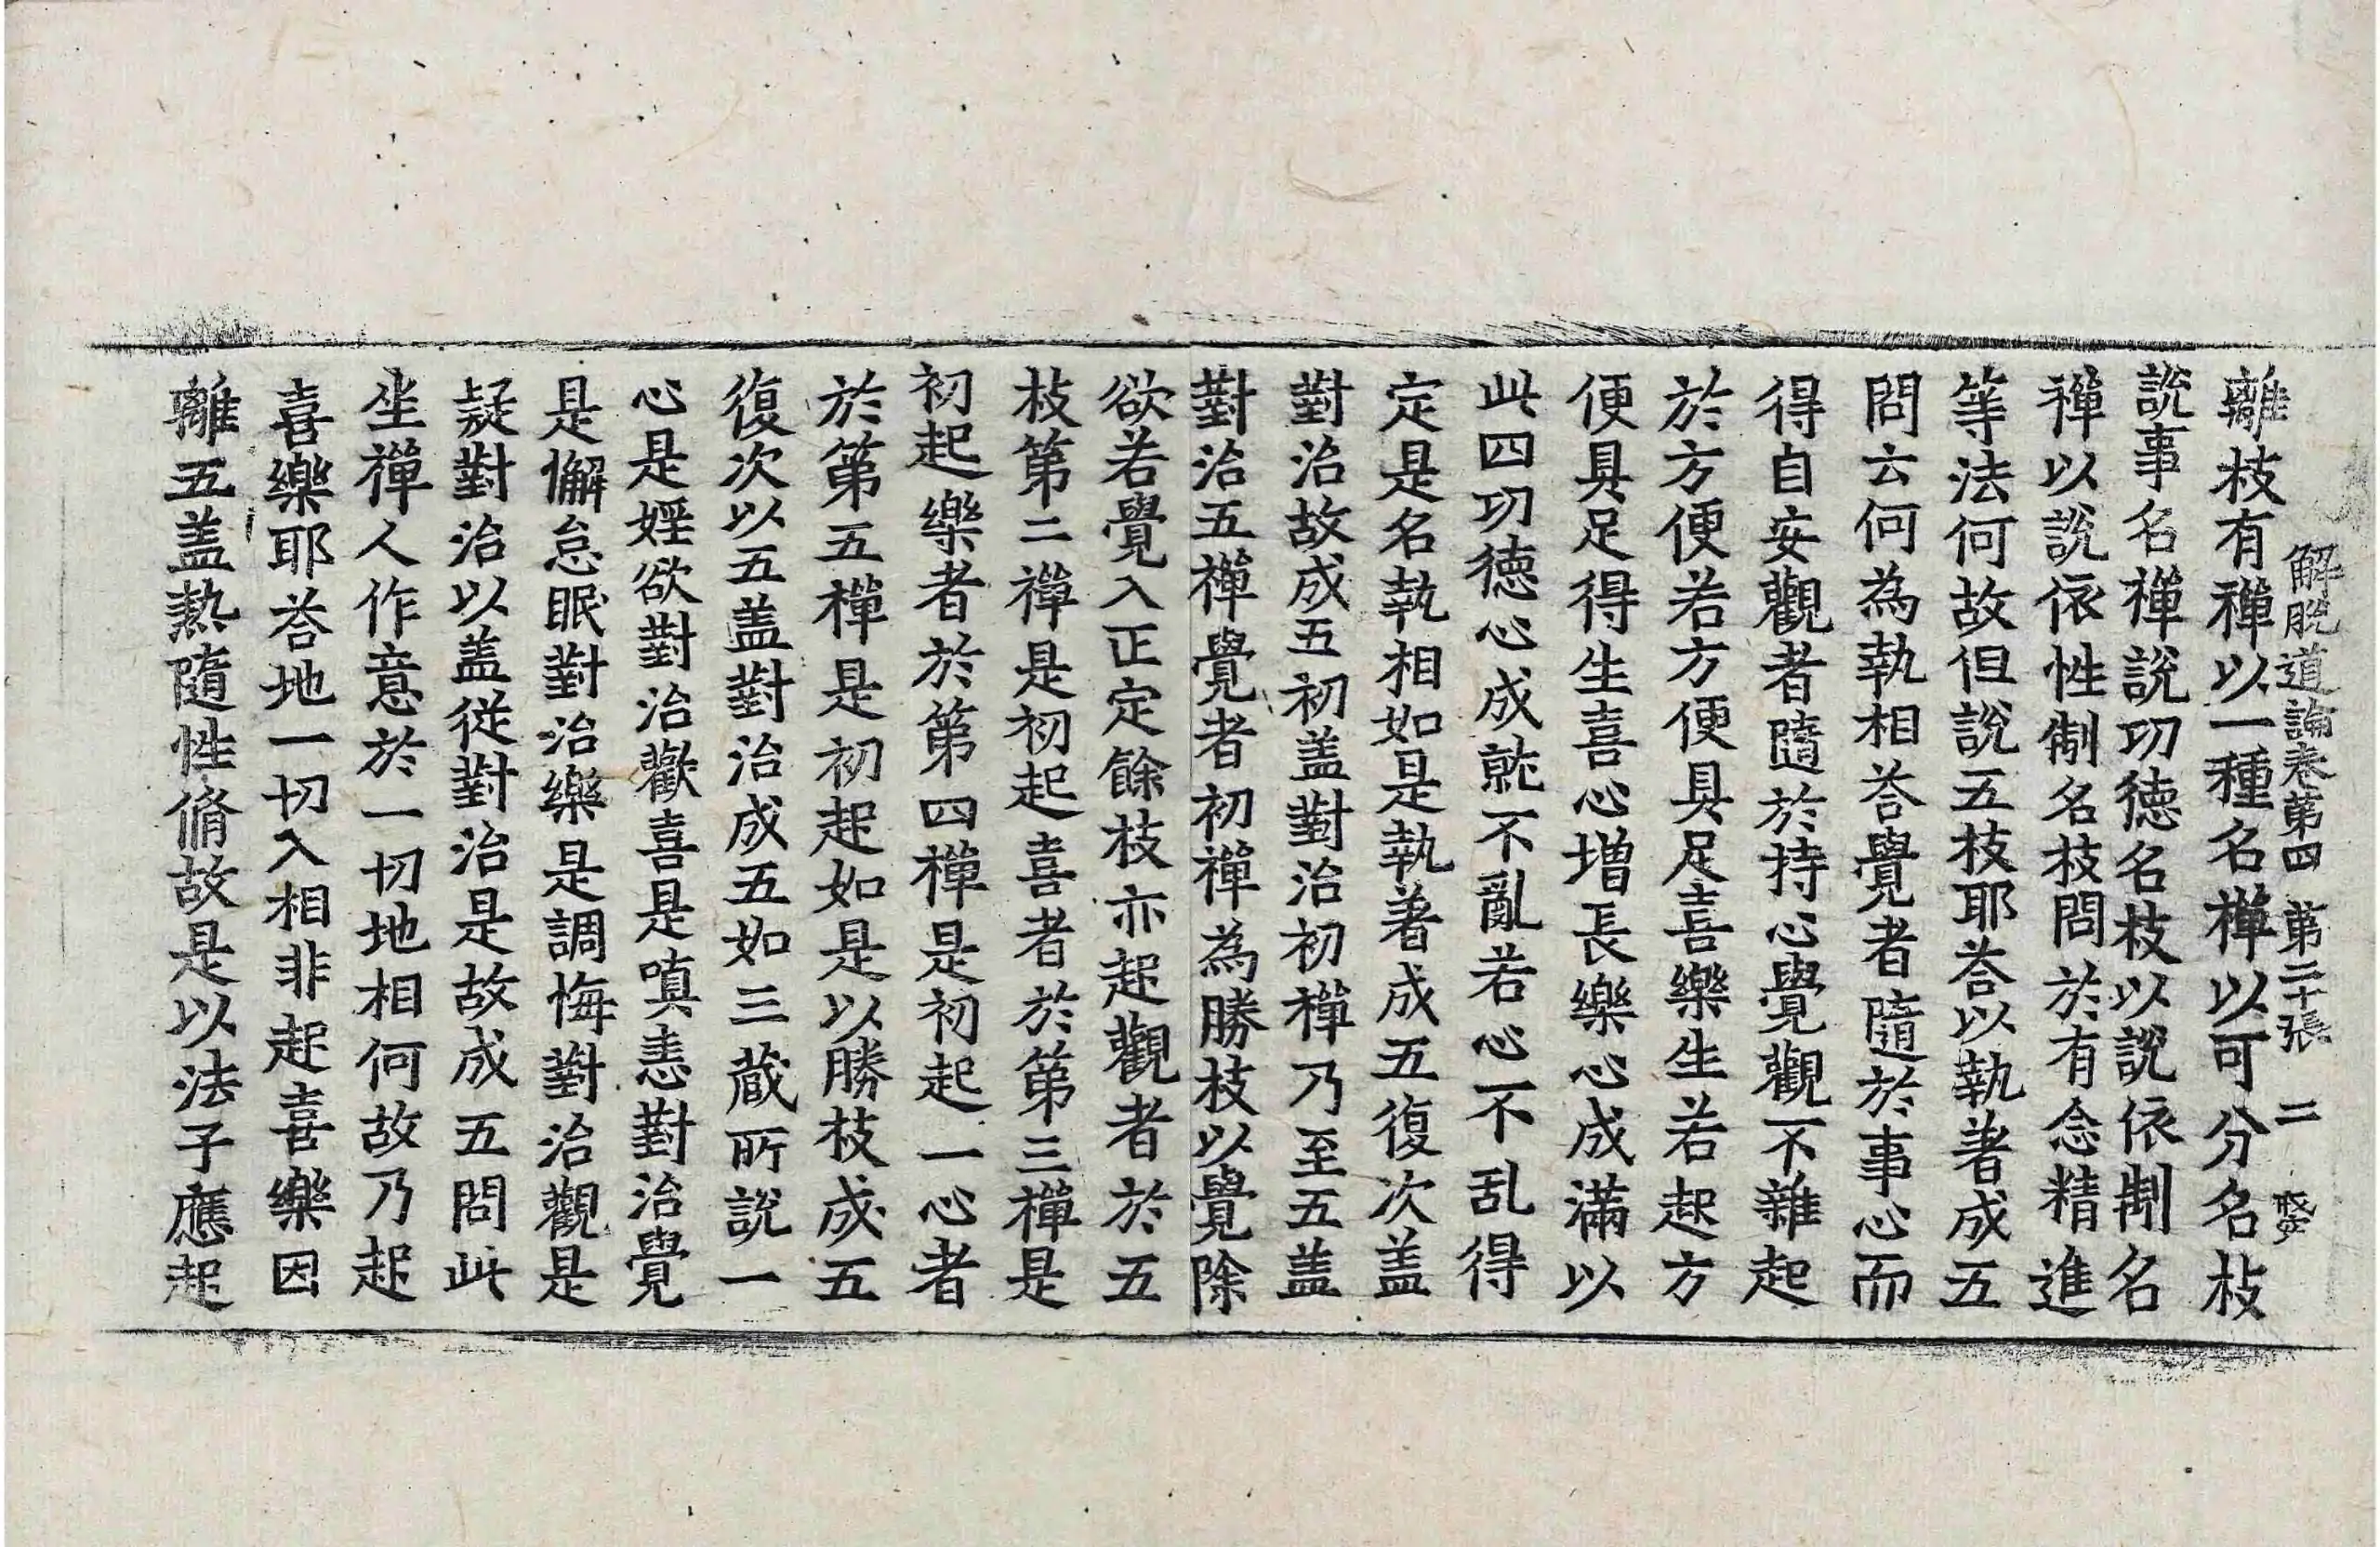 解脫道論卷第四 第二十張 二
離枝有禪以一種名禪以可分名枝
說事名禪說功德名枝以說依制名
禪以說依性制名枝問於有念精進
等法何故但說五枝耶荅以執著成五
問云何為執相荅覺者隨於事心而
得自安觀者隨於持心覺觀不雜起
於方便若方便具足喜樂生若起方
便具足得生喜心增長樂心成滿以
此四功德心成就不亂若心不乱得
定是名執相如是執著成五復次盖
對治故成五初盖對治初禪乃至五盖
對治五禪覺者初禪為勝枝以覺除
欲若覺入正定餘枝亦起觀者於五
枝第二禪是初起喜者於第三禪是
初起樂者於第四禪是初起一心者
於第五禪是初起如是以勝枝成五
復次以五盖對治成五如三蔵所說一
心是婬欲對治歡喜是嗔恚對治覺
是懈怠眠對治樂是調悔對治觀是
疑對治以盖從對治是故成五問此
坐禪人作意於一切地相何故乃起
喜樂耶荅地一切入相非起喜樂因
離五盖熱隨性脩故是以法子應起